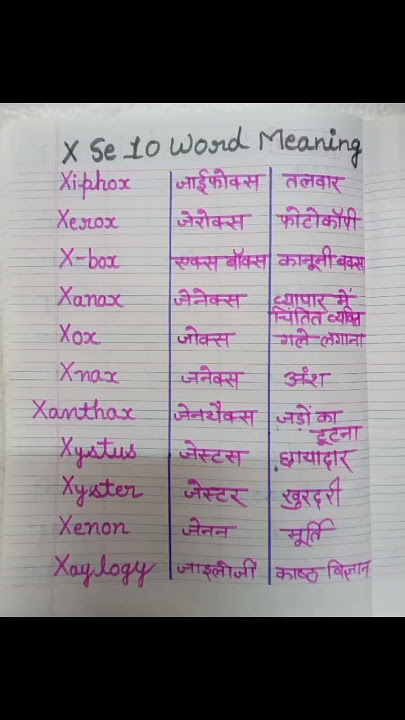 X Se 10 Word Meaning
Xiphox जाईफोक्स तलवार
Xerox जेरोक्स फोटोकॉपी
X-box एक्स बॉक्स कानूनी बक्सा
Xanax जेनेक्स व्यापार में
चिंतित व्यक्ति
Xox जोक्स गले लगाना
Xnax जनेक्स अंश
Xanthax जेनथैक्स जड़ों का
टूटना
Xystus जेस्टस छायादार
Xyster जेस्टर खुरदरी
Xenon जेनन मूर्ति
Xaylogy जाइलोजी काष्ठ विज्ञान